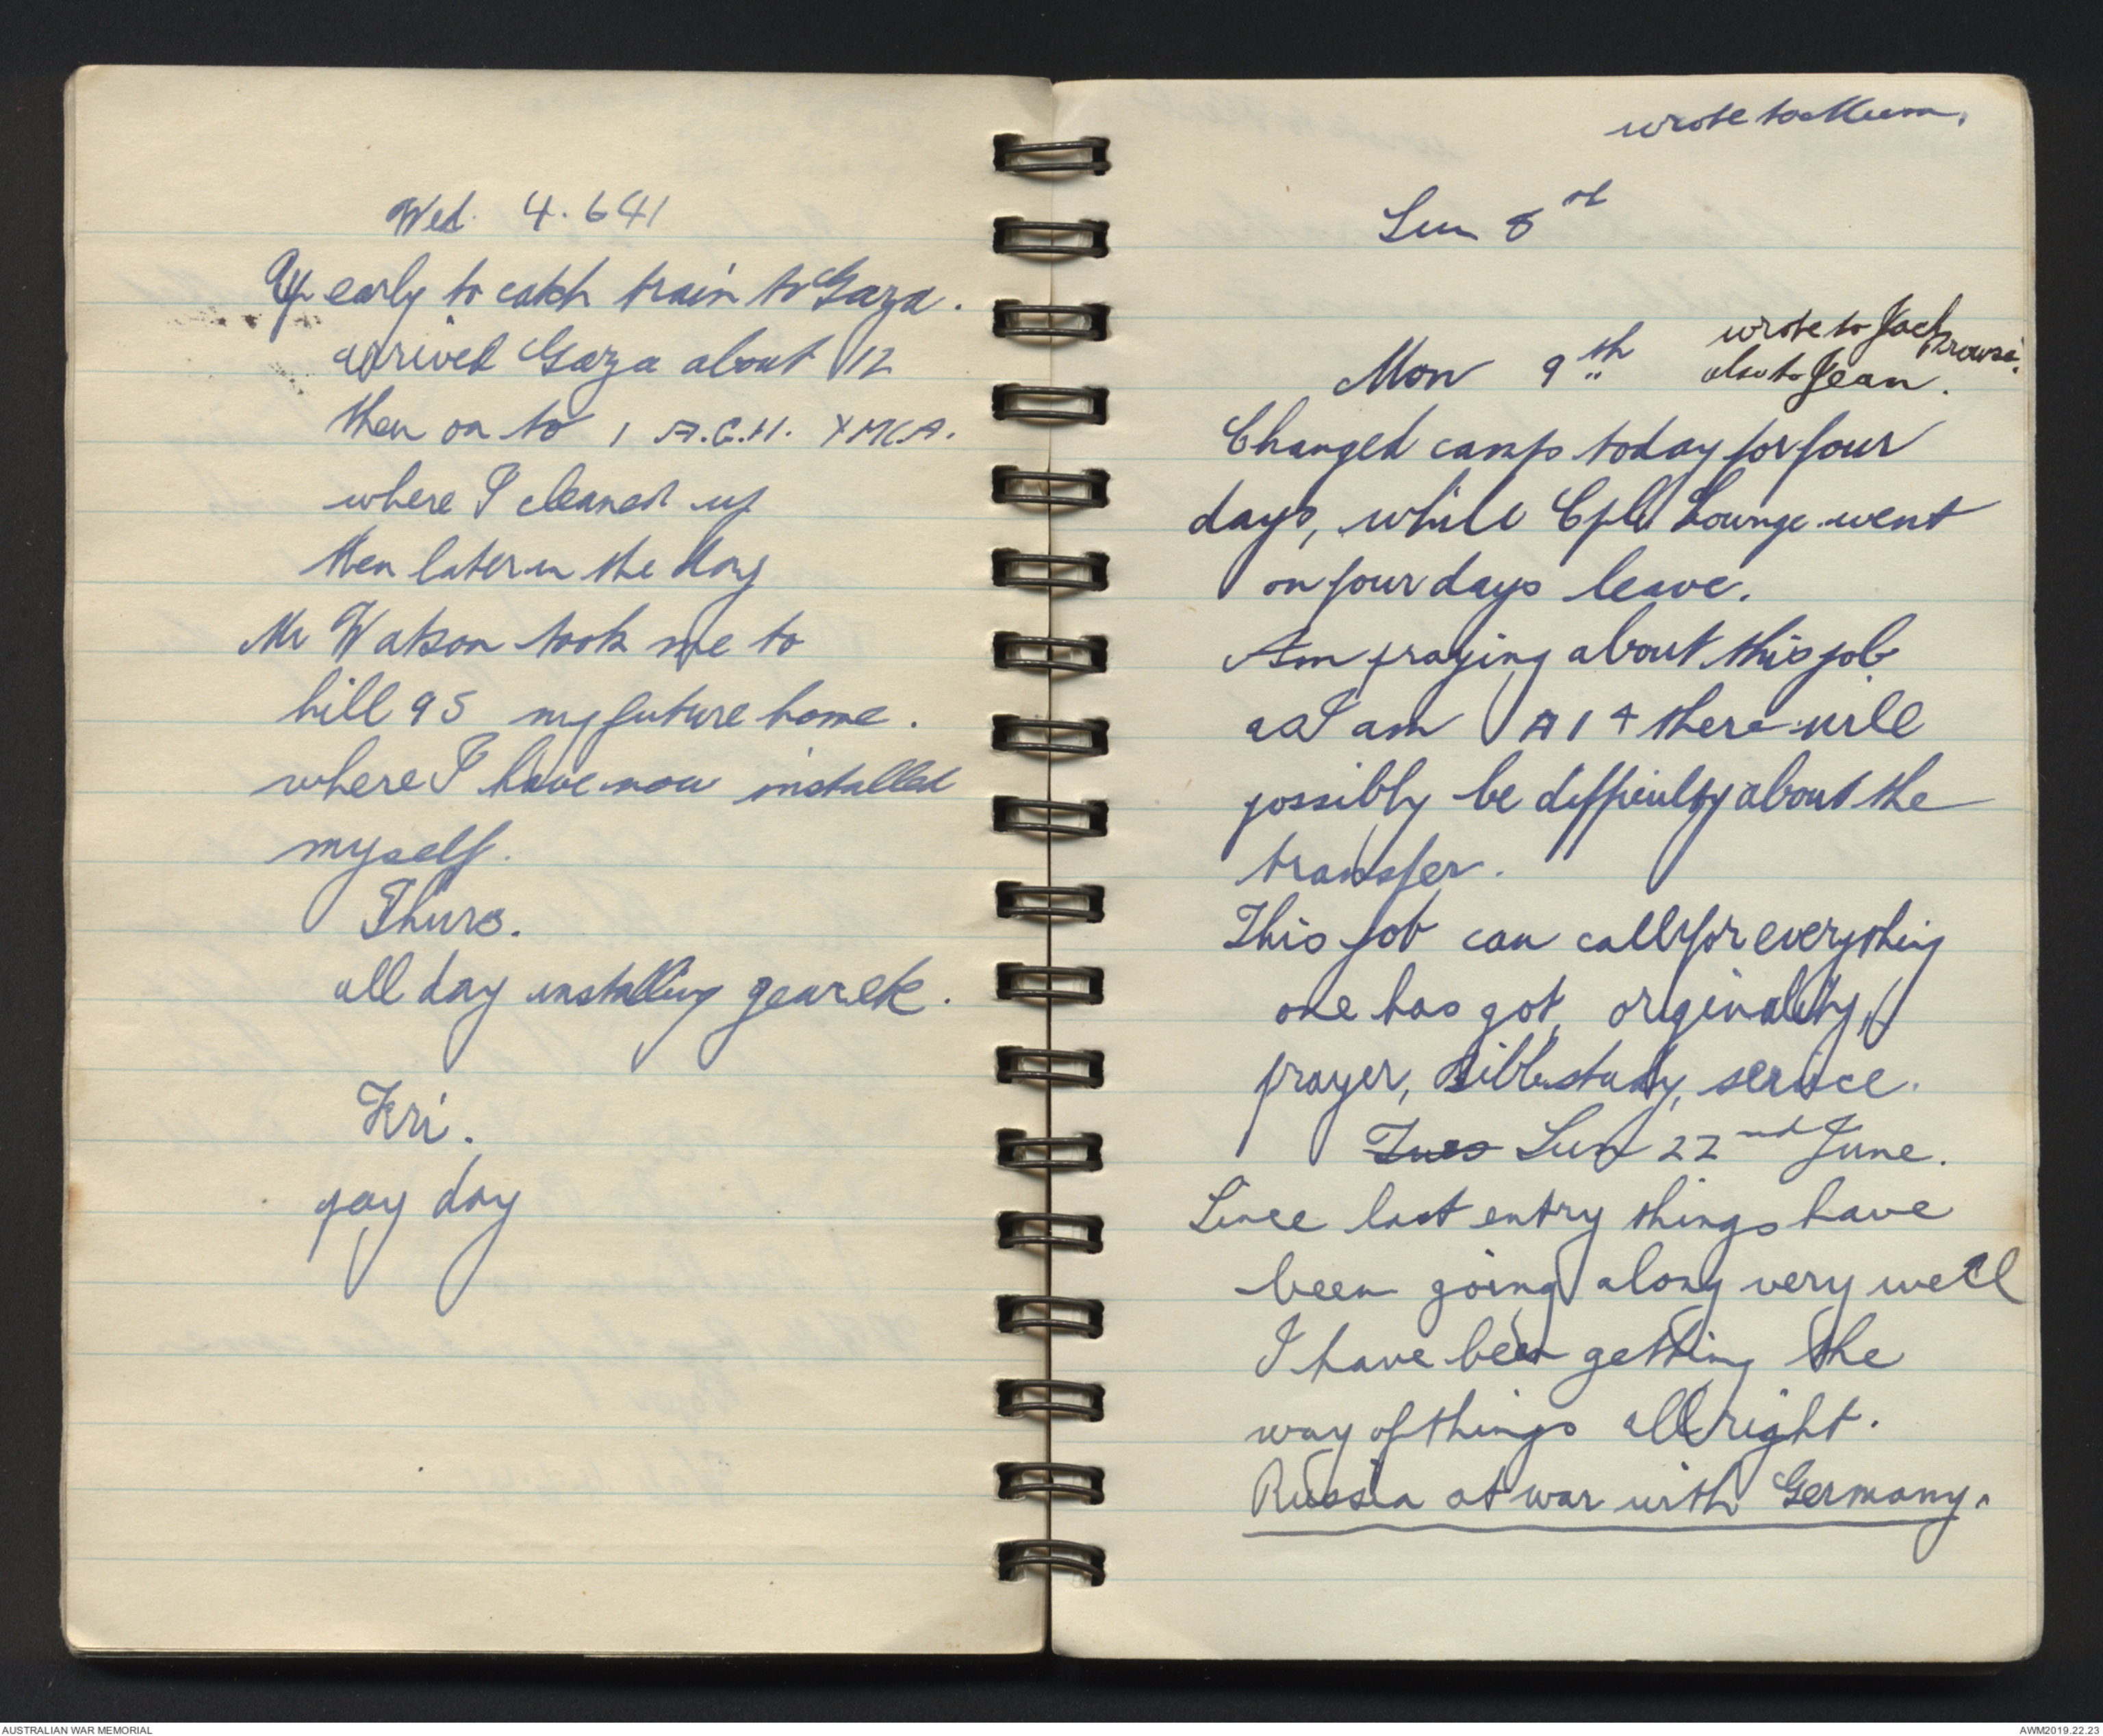 Wed. 4.641
Up early to catch train to Gaza.
arrived Gaza about 12
then on to 1 A.G.H. YMCA.
where I cleaned up
then later in the day
Mr Watson took me to
hill 95 my future home.
where I have now installed
myself.
Thurs.
all day installing gear etc.
Fri.
pay day
wrote to Mum.
Sun 8th
Mon 9th
wrote to Jack Prowse.
also to Jean.
Changed camp today for four
days, while Cpl Lounge went
on four days leave.
Am praying about this job
as I am A1 + there will
possibly be difficulty about the
transfer.
This job can call for everything
one has got, originality,
prayer, Bible study, service.
Tues Sun 22nd June.
Since last entry things have
been going along very well
I have been getting the
way of things all right.
Russia at war with Germany.
AUSTRALIAN WAR MEMORIAL
AWM2019.22.23